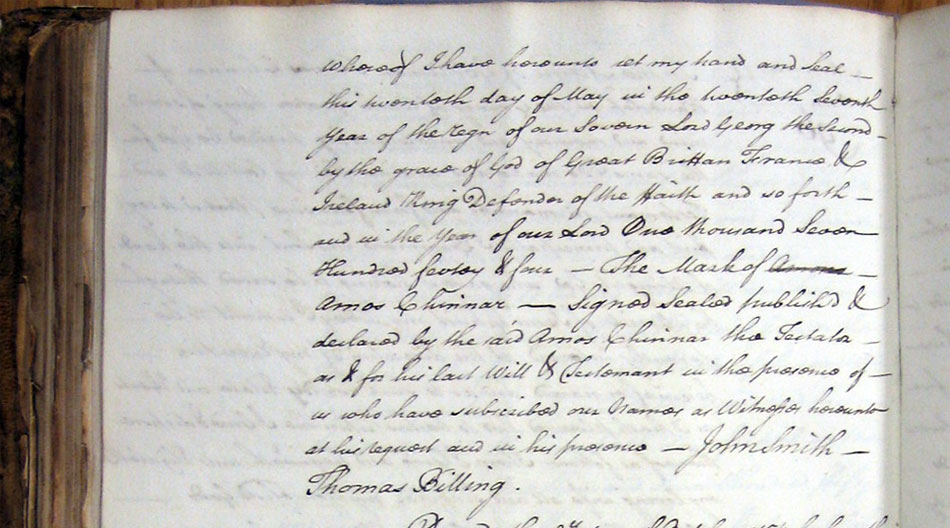 Whereof I have hereunto set my hand and Seal –
this twentieth day of May in the twenteth Seventh
Year of the regn of our Sovern Lord Georg the Second –
by the grace of God of Great Brittan France &
Ireland King Defender of the Faith and so forth –
and in the Year of our Lord One thousand Seven
Hundred fevtey & four – The Mark of Amos –
Amos Chinnar – Signed Sealed publish'd &
declared by the said Amos Chinnar the Testator –
as & for his last Will & Testemant in the presence of –
us who have subscribed our Names as Witnesses hereunto
at his request and in his presence – John Smith –
Thomas Billing.